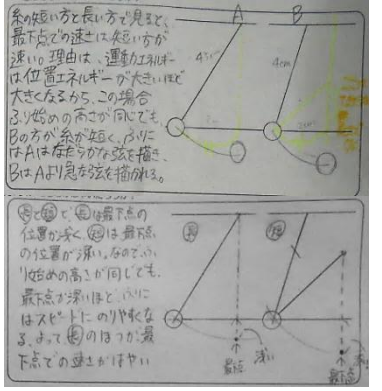 糸の短い方と長い方で見ると、
最下点での速さは短い方が
速い。理由は、運動エネルギー
は位置エネルギーが大きいほど
大きくなるから、この場合
ふり始めの高さが同じでも、
Bの方が糸が短く、ふりこ
はAはなだらかな弦を描き、
BはAより急な弦を描かれる。
A
B
4cm
長と短で、長は最下点の
位置が浅く、短は最下点
の位置が深い。なのでふ
り始めの高さが同じでも、
最下点が深いほど、ふりこ
はスピードにのりやすくな
る。よって短のほうが最
下点での速さがはやい
長
短
最下点
浅い
最下点
深い